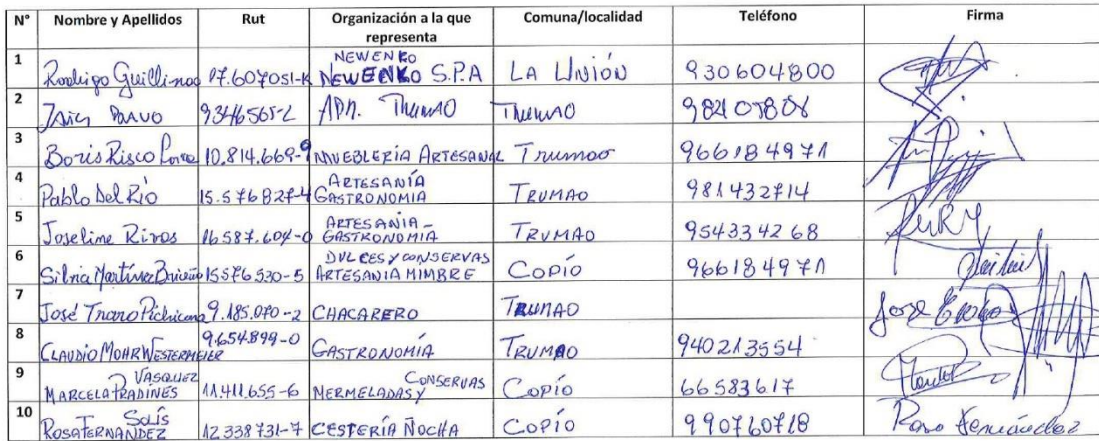 N° Nombre y Apellidos Rut Organización a la que representa Comuna/localidad Teléfono Firma
1 Rodrigo Guillinao 17.607051-K NEWENKO NEWENKO S.P.A LA UNIÓN 930604800
2 BRAVO 9346565-2 TRUMAO
3 Boris Risco 10.814.669-9 MUEBLERÍA ARTESANAL Trumao 966184971
4 Pablo Del Río 15.576827-4 ARTESANÍA GASTRONOMIA TRUMAO 981432714
5 Joseline Rivas 16.587.604-0 ARTESANIA- GASTRONOMIA TRUMAO 954334268
6 Silvia Martínez Briceño 15576530-5 DULCES Y CONSERVAS ARTESANIA MIMBRE COPÍO 966184971
7 José 9.185.070-2 CHACARERO TRUMAO José
8 CLAUDIO MOHR WESTERMEIER 9.654.899-0 GASTRONOMÍA TRUMAO 940213554
9 MARCELA VASQUEZ PRADINES 11.411.655-6 MERMELADAS Y CONSERVAS COPÍO 66583617
10 ROSA SOLÍS FERNANDEZ 12338731-7 CESTERÍA ÑOCHA COPÍO 990760718 Rosa Fernández